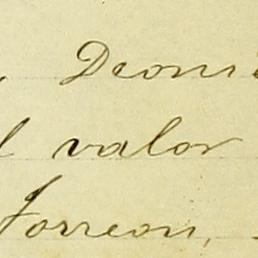 , Deoni
l valor
Torreon,